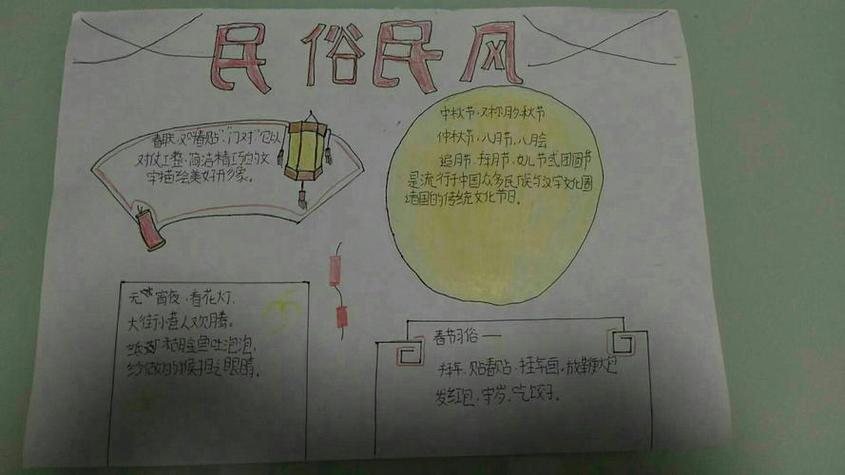 民俗民风
春联,又叫"春贴","门对"它以
对仗工整,简洁精巧的文
字描绘美好形象。
中秋节,又称月夕,秋节
仲秋节,八月节,八月会
追月节,拜月节,女儿节或团圆节
是流行于中国众多民族与汉字文化圈
诸国的传统文化节日。
元宵夜,看花灯,
大街小巷人欢腾。
纸糊金鱼吐泡泡,
纱做的猴子眨眼睛。
春节习俗——
拜年,贴春贴,挂年画,放鞭炮
发红包,守岁,吃饺子。